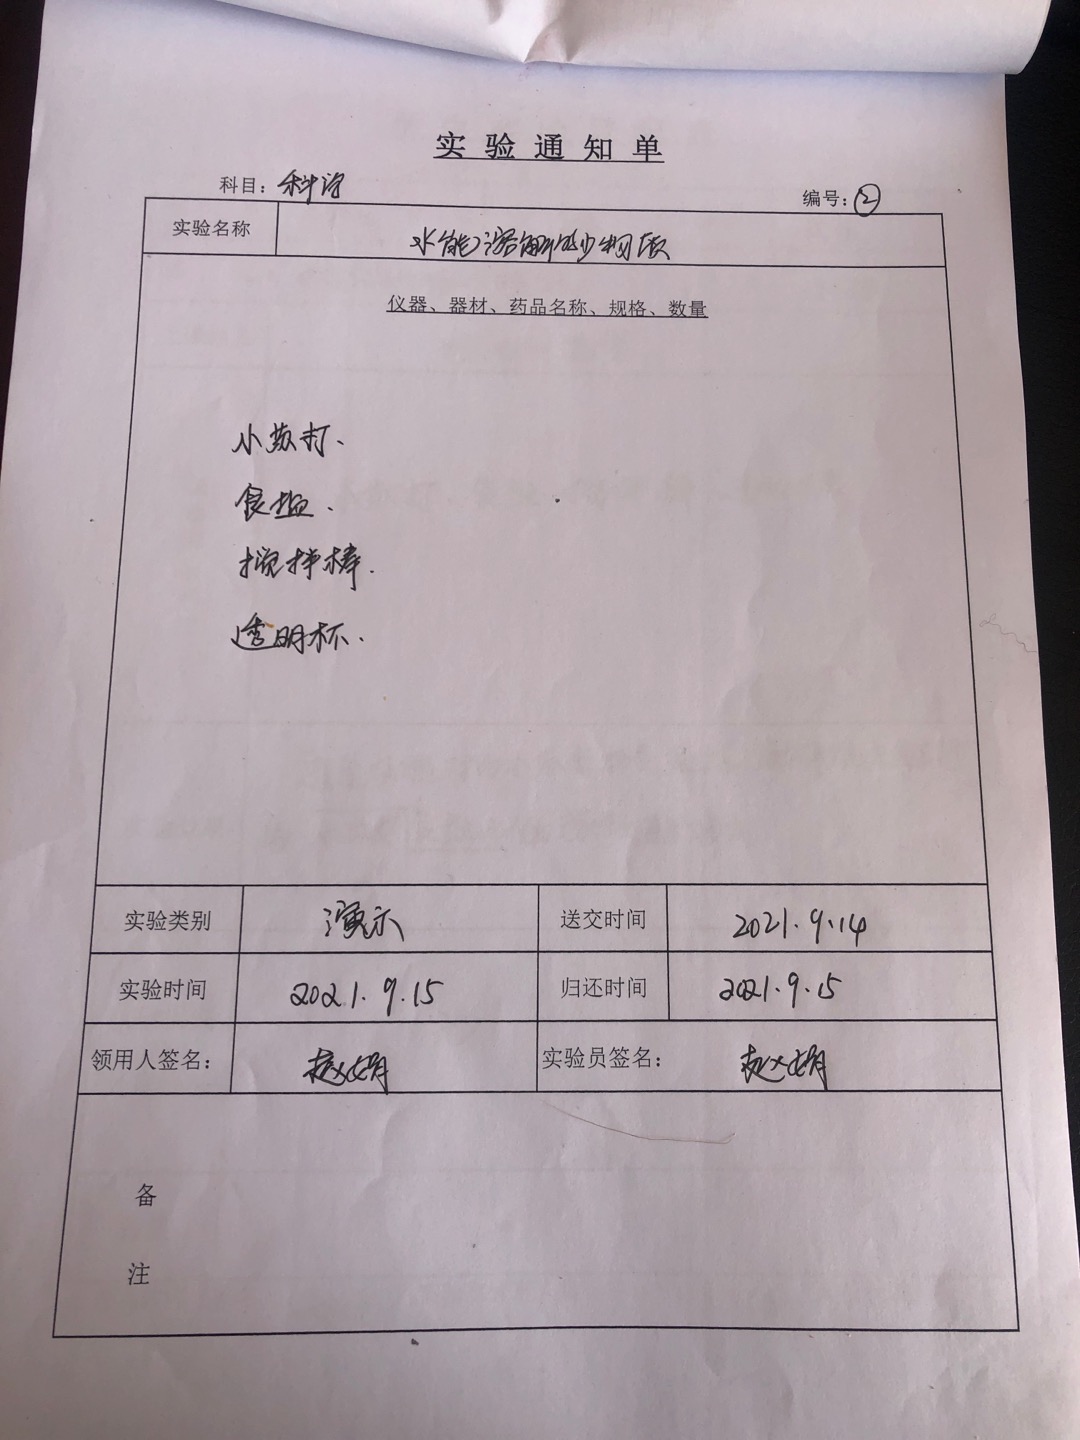 实验通知单
科目：科学 编号：②
实验名称 水能溶解多少物质
仪器、器材、药品名称、规格、数量
小苏打、
食盐、
搅拌棒.
透明杯、
实验类别 演示 送交时间 2021.9.14
实验时间 2021.9.15 归还时间 2021.9.15
领用人签名： 赵娟 实验员签名： 赵娟
备
注